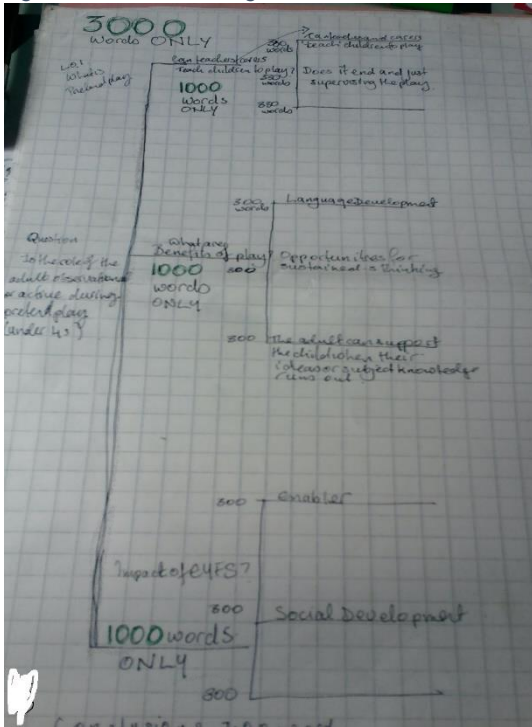 3000
Words ONLY
What is
Pretend play
Can teachers
teach children to play?
1000
Words
ONLY
350
words
teach children to play
350
words
Does it end and just
supervising the play
350
words
Question
Is the role of the
adult observational
or active during
pretend play
(under 4s)
What are
Benefits of play?
1000
words
ONLY
300
words
Language Development
300
Opportunities for
sustained thinking
300
The adult can support
the child when their
ideas or subject knowledge
runs out
Impact of EYFS?
1000 words
ONLY
300
enabler
300
Social Development
300
Conclusion